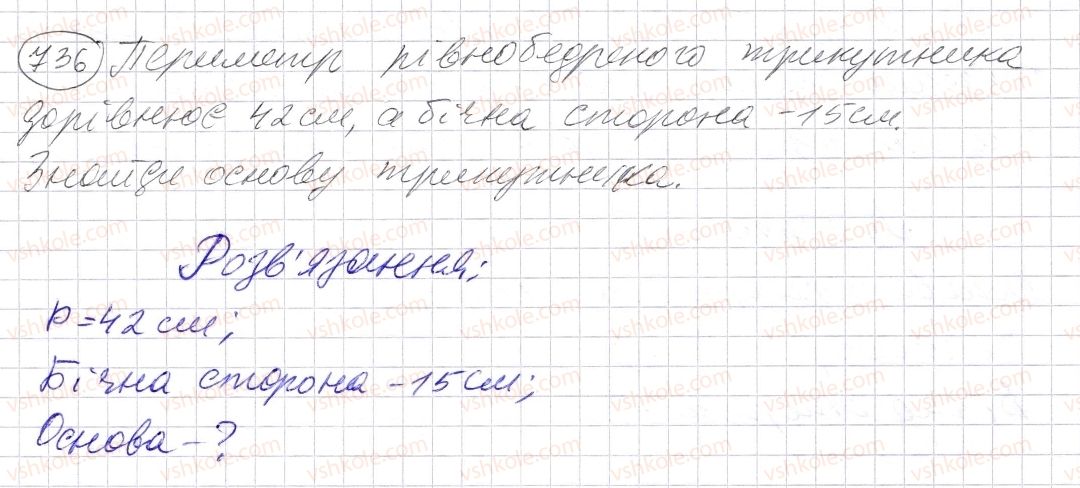 736 Периметр рівнобедреного трикутника
дорівнює 42 см, а бічна сторона - 15 см.
Знайди основу трикутника.
Розв'язання:
P = 42 см;
Бічна сторона - 15 см;
Основа - ?